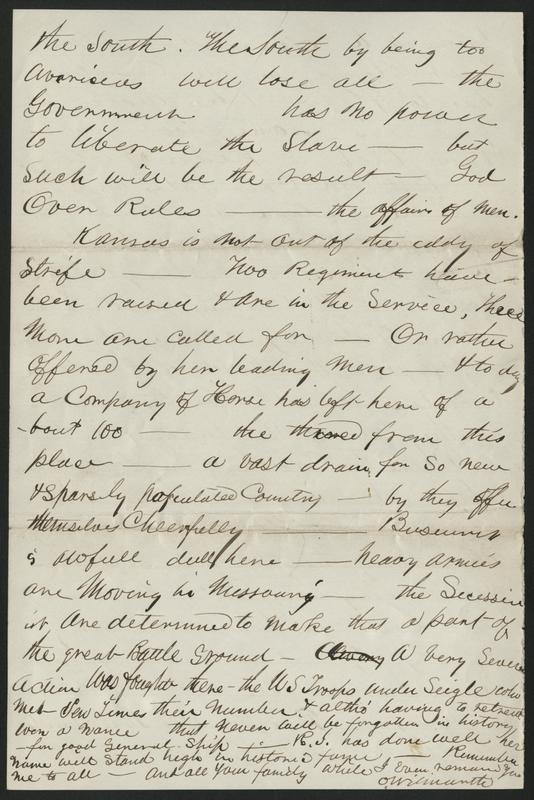 the South. The South by being too
avariceus will lose all — the
Government has no power
to liberate the Slave — but
such will be the result — God
Over Rules — the affairs of men.
Kansas is not out of the eddy of
Strife — Two Regiments have
been raised & are in the Service, three
More are called for — Or rather
Offered by her leading men — & to day
a Company of Horse has left here of a
-bout 100 — the third from this
place — a vast drain for So new
& Sparsely populated Country — by they offer
themselves Cheerfully — Business
is awfull dull here — heavy armies
are Moving in Missouri — the Secession
ist are determined to make that a part of
the great Battle Ground — A very Severe
Action Was fought there — the US Troops under Seigle
met Ten Times their Number & altho having to retreat
won a name that never will be forgotten in history
— for good General Ship — R.I. has done well her
name will Stand high in historic fame Remember
me to all — and all your family while I Ever remain you
O. Wilmarth